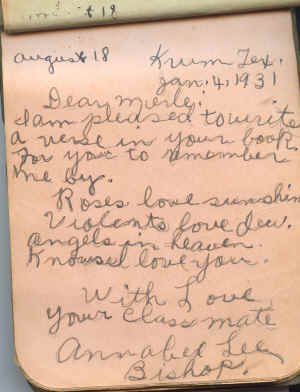 t 19
august 18 Krum Tex.
Jan. 4, 1931
Dear Merle:
I am pleased to write
a verse in your book
For you to remember
me by.
Roses love sunshin
Violents love dew.
angels in heaven.
Knows I love you.
With Love
your classmate
Annabel Lee
Bishop.